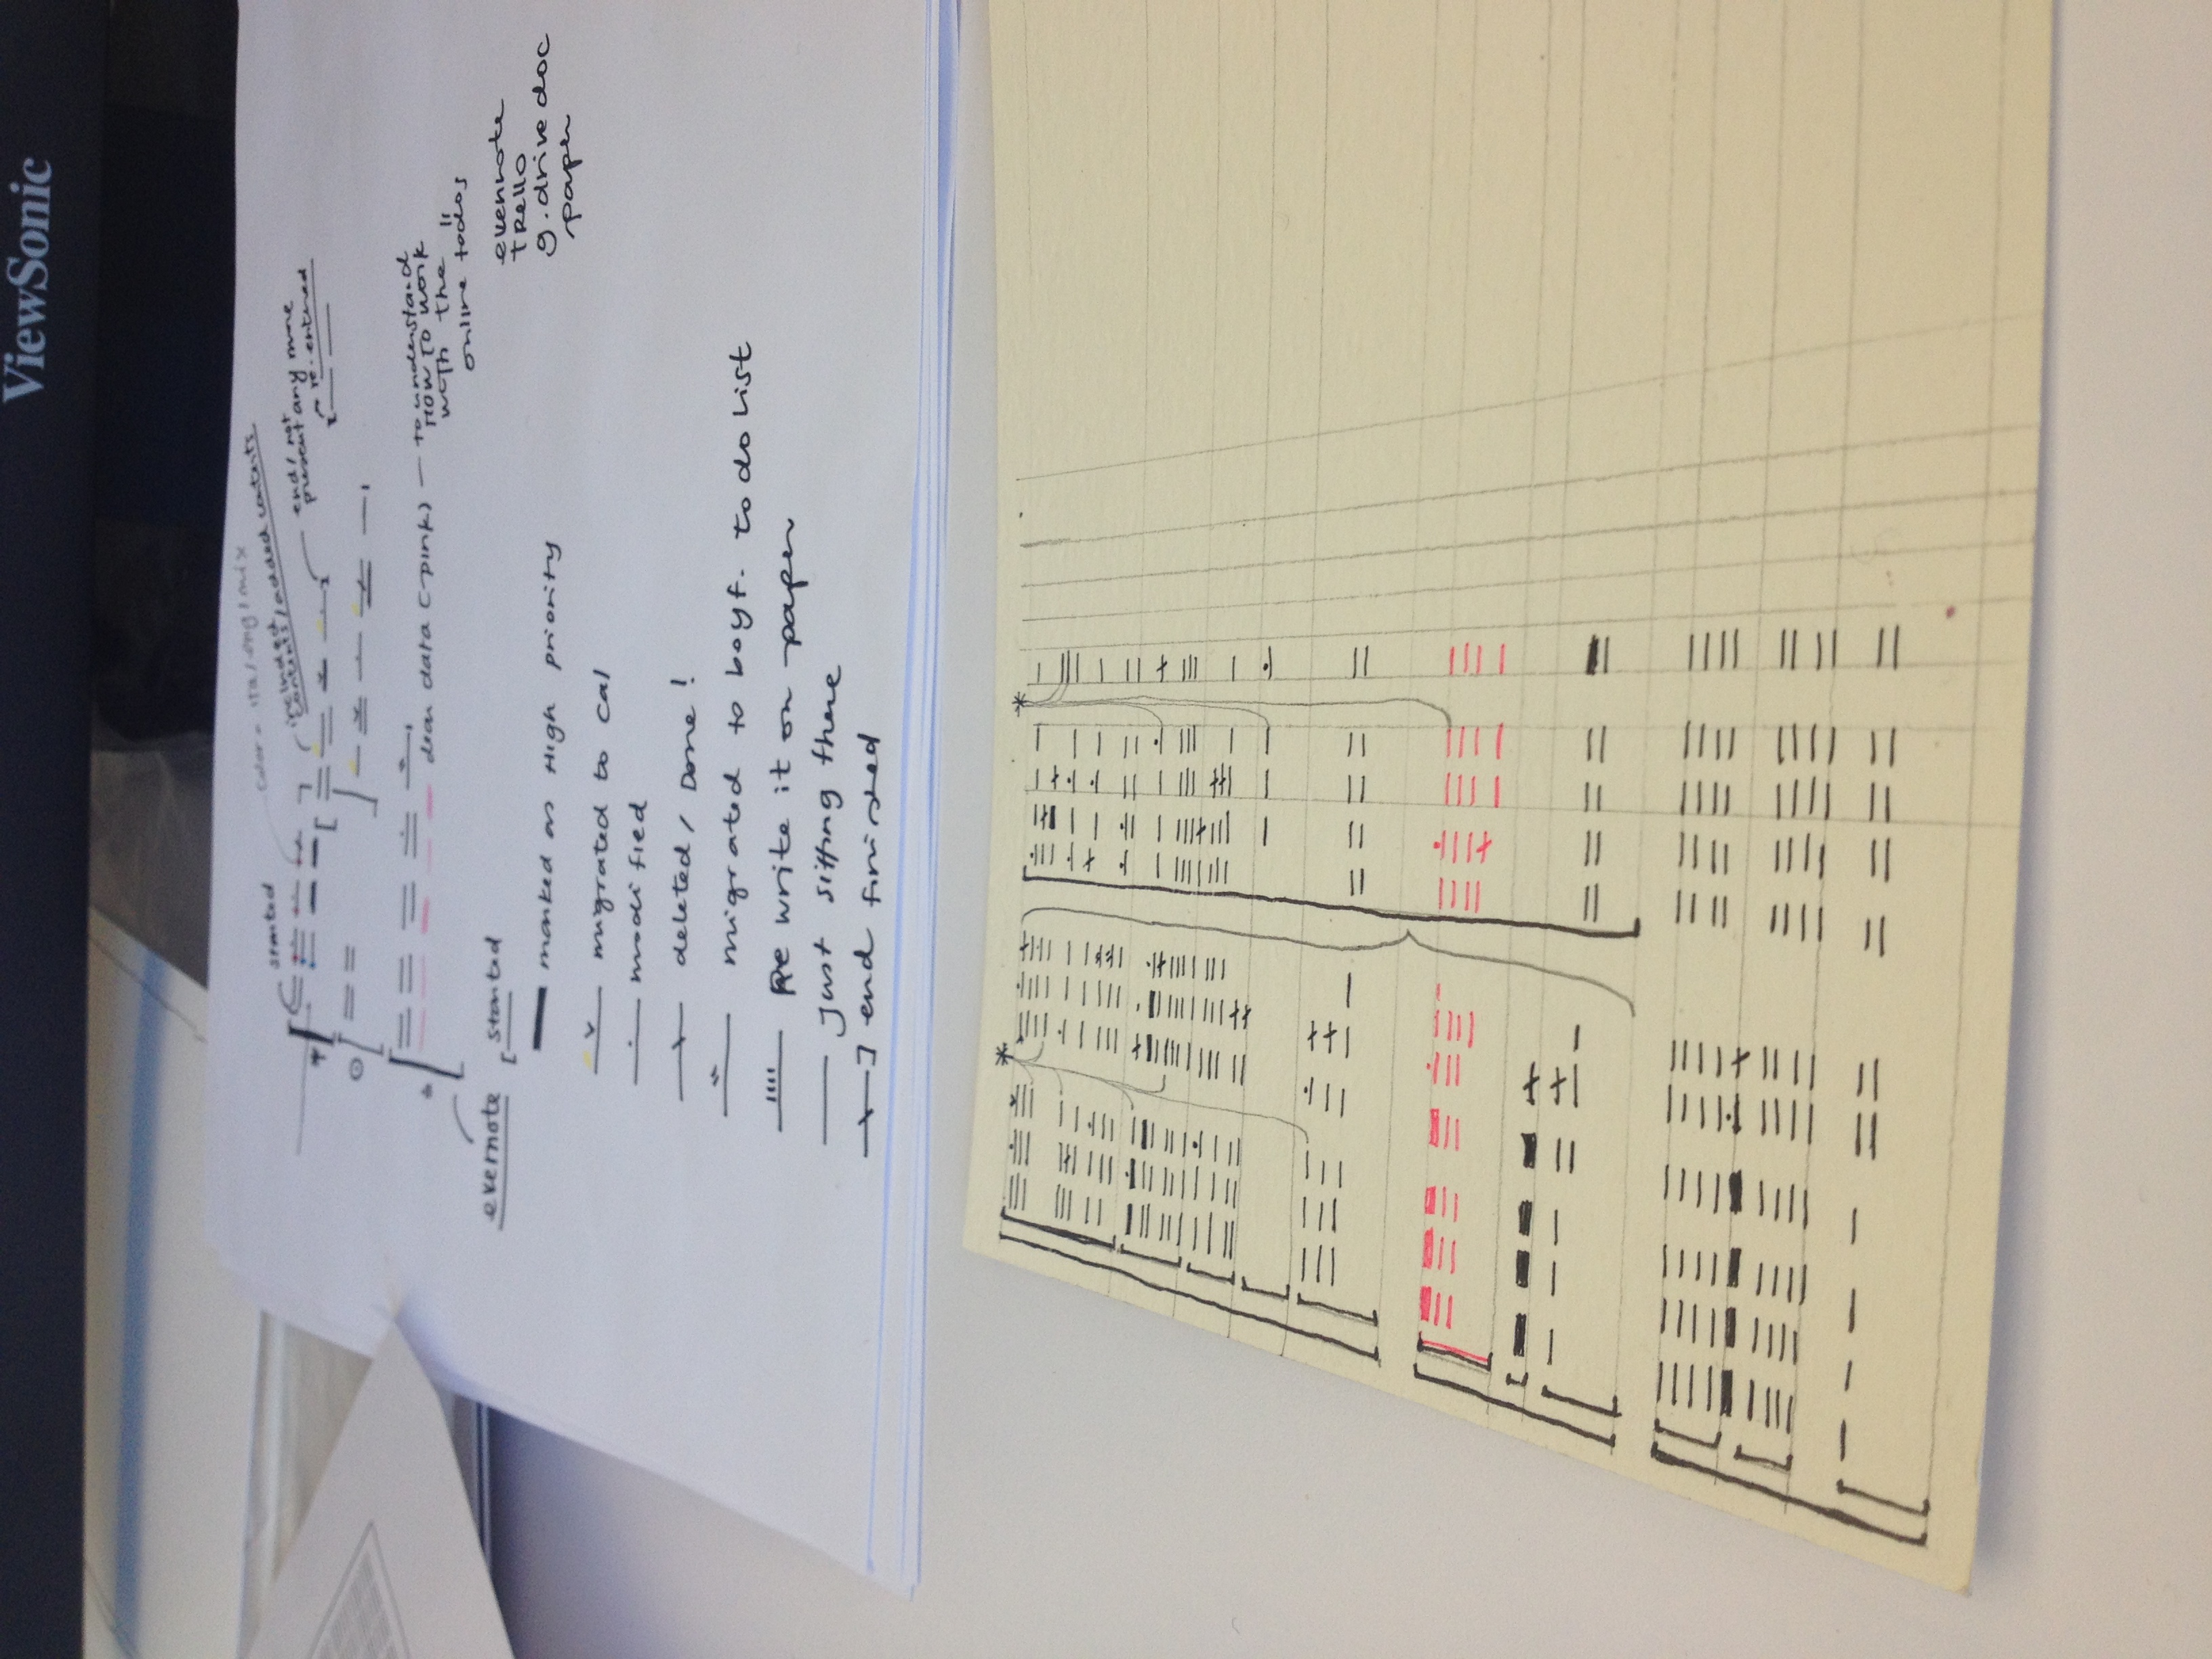 ViewSonic
color = ita/eng/mix
started
included / added contents
end / not
present any more
re-entered
dear data (-pink) — to understand
HOW TO work
with the
online todos
evernote
tRello
g.drive doc
paper
evernote [ started
marked as High priority
migrated to cal
modified
deleted / Done!
migrated to boyf. to do list
Re write it on paper
Just sitting there
] end finished